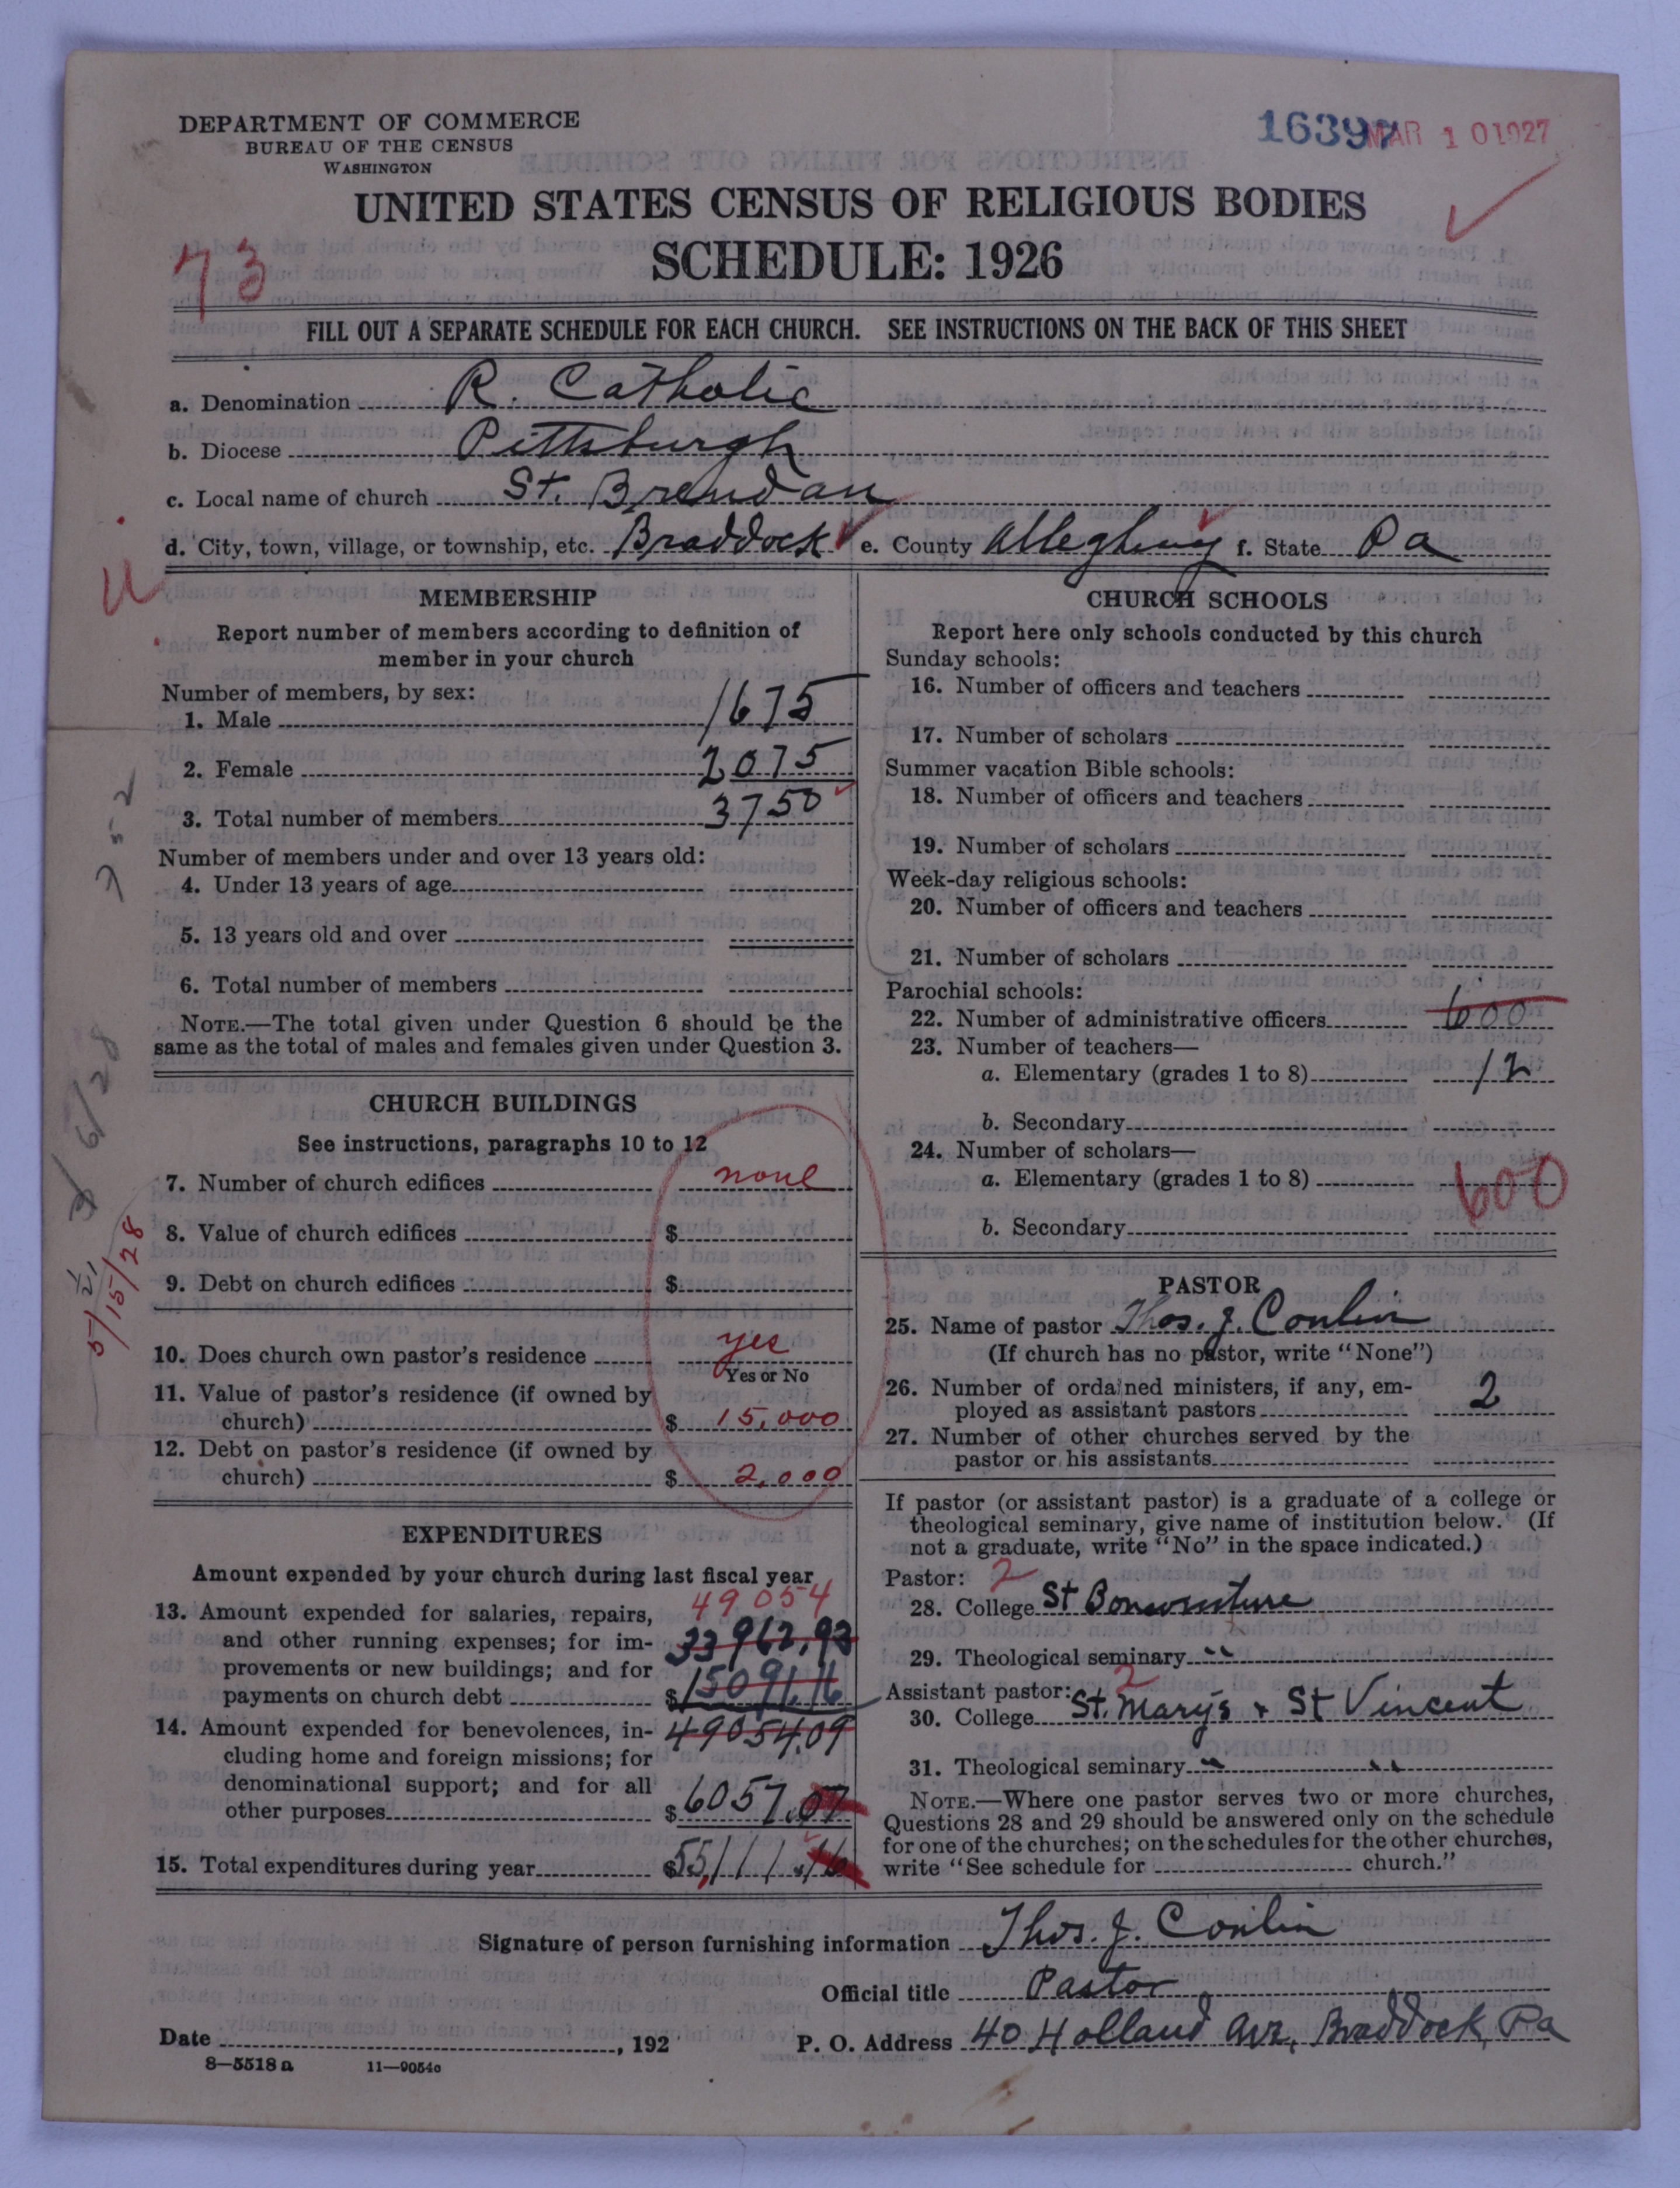 DEPARTMENT OF COMMERCE
BUREAU OF THE CENSUS
WASHINGTON
16397 MAR 10 1927
UNITED STATES CENSUS OF RELIGIOUS BODIES
SCHEDULE: 1926
73
FILL OUT A SEPARATE SCHEDULE FOR EACH CHURCH. SEE INSTRUCTIONS ON THE BACK OF THIS SHEET
a. Denomination R. Catholic
b. Diocese Pittsburgh
c. Local name of church St. Brendan
d. City, town, village, or township, etc. Braddock e. County Allegheny f. State Pa
MEMBERSHIP
Report number of members according to definition of
member in your church
Number of members, by sex:
1. Male 1675
2. Female 2075
3. Total number of members 3750
Number of members under and over 13 years old:
4. Under 13 years of age
5. 13 years old and over
6. Total number of members
NOTE.—The total given under Question 6 should be the
same as the total of males and females given under Question 3.
CHURCH BUILDINGS
See instructions, paragraphs 10 to 12
7. Number of church edifices none
8. Value of church edifices $
9. Debt on church edifices $
10. Does church own pastor's residence yes
Yes or No
11. Value of pastor's residence (if owned by
church) $ 15,000
12. Debt on pastor's residence (if owned by
church) $ 2,000
3/6/28
5/15/28
EXPENDITURES
Amount expended by your church during last fiscal year
49054
13. Amount expended for salaries, repairs,
and other running expenses; for im- 33962.93
provements or new buildings; and for
payments on church debt $ 15091.16
14. Amount expended for benevolences, in- 49054.09
cluding home and foreign missions; for
denominational support; and for all
other purposes $ 6057.07
15. Total expenditures during year $ 55,111.16
CHURCH SCHOOLS
Report here only schools conducted by this church
Sunday schools:
16. Number of officers and teachers
17. Number of scholars
Summer vacation Bible schools:
18. Number of officers and teachers
19. Number of scholars
Week-day religious schools:
20. Number of officers and teachers
21. Number of scholars
Parochial schools:
22. Number of administrative officers 600
23. Number of teachers—
a. Elementary (grades 1 to 8) 12
b. Secondary
24. Number of scholars—
a. Elementary (grades 1 to 8) 600
b. Secondary
PASTOR
25. Name of pastor Thos. J. Conlin
(If church has no pastor, write "None")
26. Number of ordained ministers, if any, em-
ployed as assistant pastors 2
27. Number of other churches served by the
pastor or his assistants
If pastor (or assistant pastor) is a graduate of a college or
theological seminary, give name of institution below. (If
not a graduate, write "No" in the space indicated.)
Pastor: 2
28. College St Bonaventure
29. Theological seminary " "
Assistant pastor: 2
30. College St. Mary's + St Vincent
31. Theological seminary " "
NOTE.—Where one pastor serves two or more churches,
Questions 28 and 29 should be answered only on the schedule
for one of the churches; on the schedules for the other churches,
write "See schedule for church."
Signature of person furnishing information Thos. J. Conlin
Official title Pastor
Date , 192 P. O. Address 40 Holland Ave, Braddock, Pa
8—5518 a 11—9054c